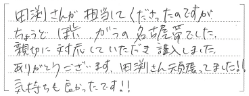 田渕さんが担当してくださったのですが
ちょうど ほしい がらの名古屋帯でした。
親切に対応していただき購入しました。
ありがとうございます。田渕さん頑張ってました!!
気持ちも良かったです!!